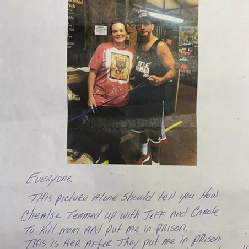 Everyone
This picture Alone Should tell you How
Cheatse Teamed up with Jeff and Carole
To Kill mom And put me in prison.
This is Her After They put me in prison